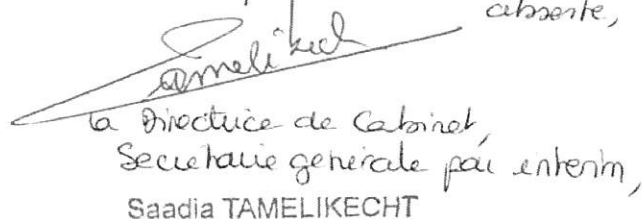 absente,
Tamelikech
la Directrice de Cabinet,
Secretaire generale par interim,
Saadia TAMELIKECHT